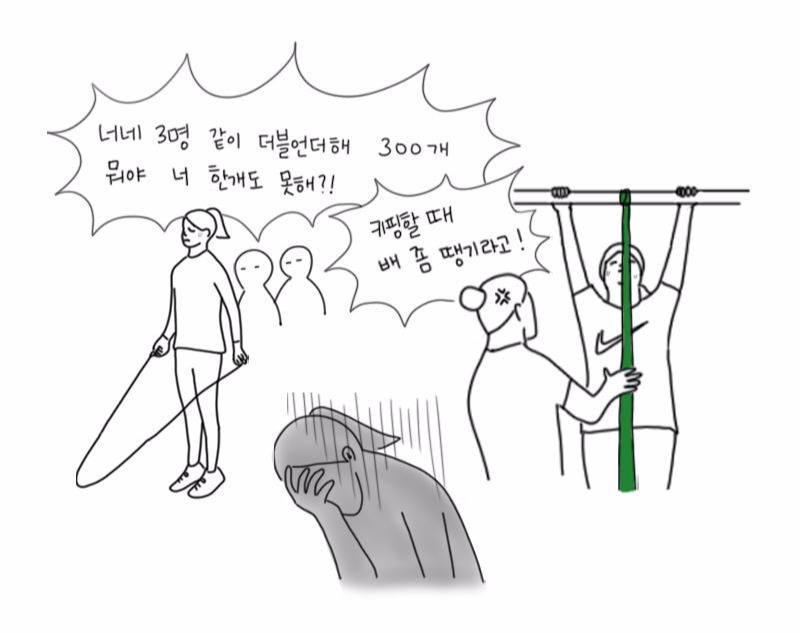 너네 3명 같이 더블언더해 300개
뭐야 너 한개도 못해?!
키핑할 때
배 좀 땡기라고!